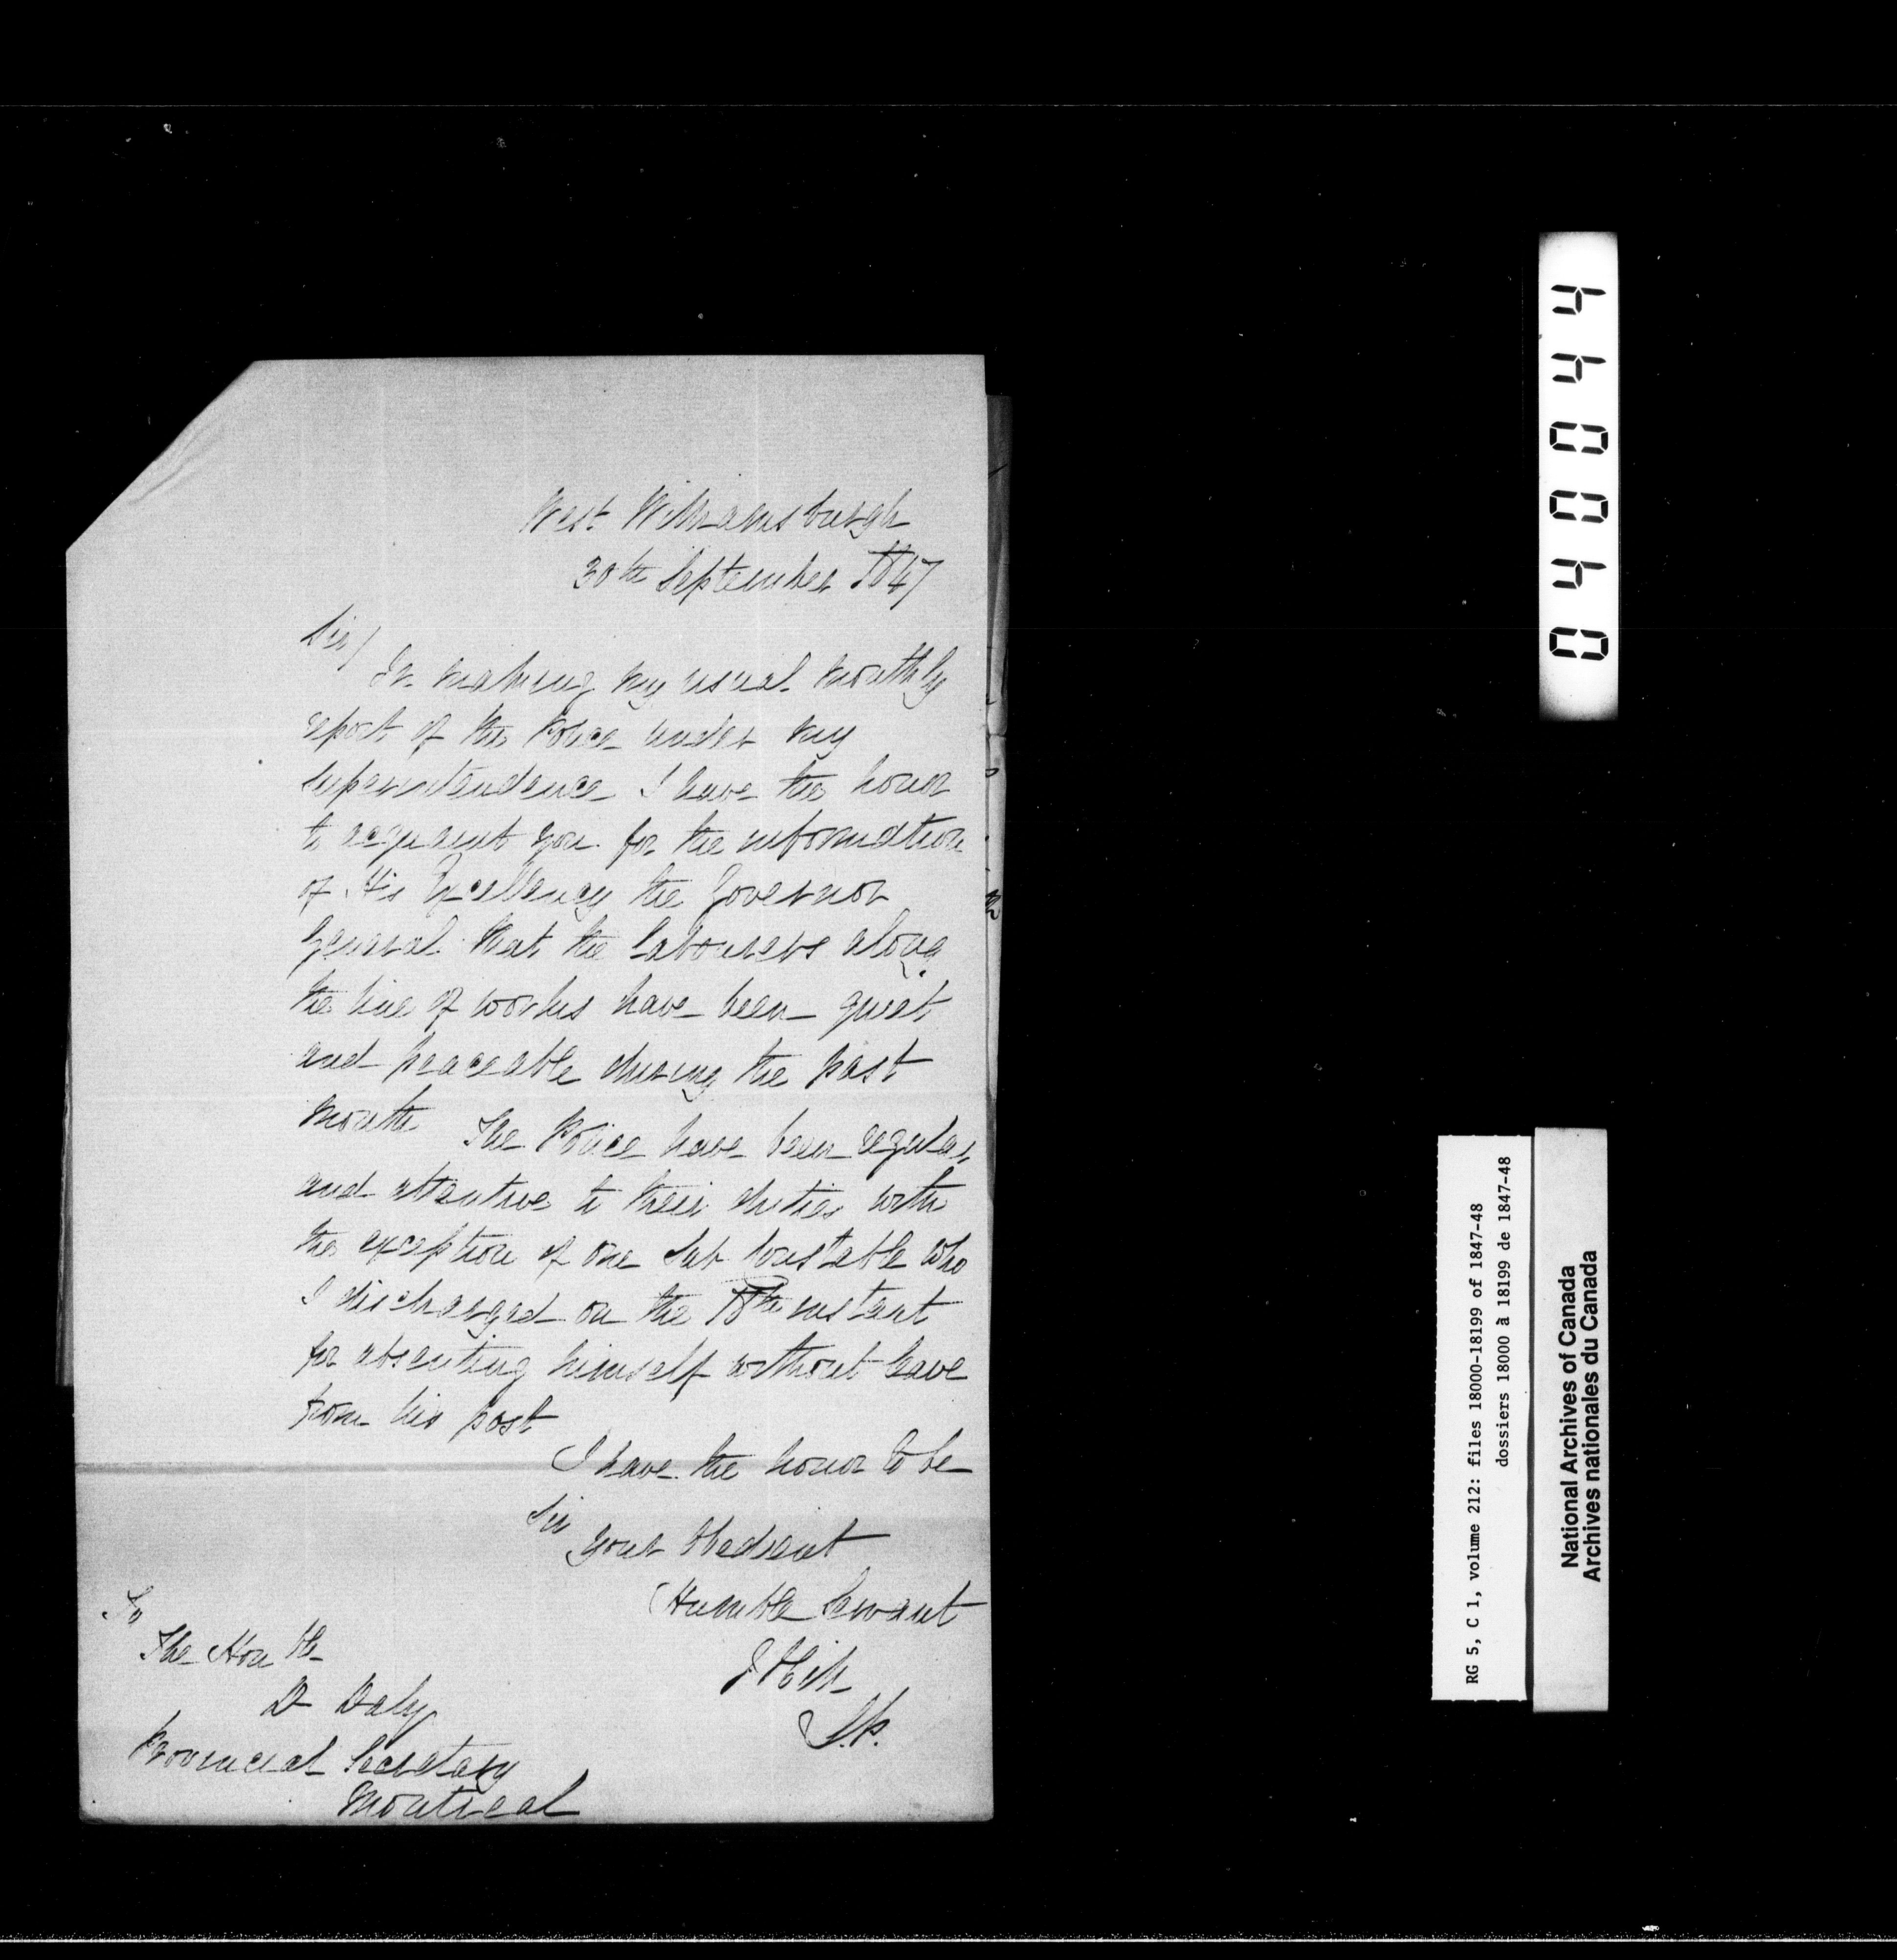 West Williamsburgh
30th September 1847
Sir/
In making my usual monthly
report of the Police under my
superintendence I have the honor
to acquaint you for the information
of His Excellency the Governor
General that the Labourers along
the line of works have been quiet
and peaceable during the past
month The Police have been regular
and attentive to their duties with
the exception of one Sub Constable who
I discharged on the 18th instant
for absenting himself without leave
from his post
I have the honor to be
Sir
your Obedient
Humble Servant
J Hill
J.P.
To
The Honble
D Daly
Provincial Secretary
Montreal
040044
RG 5, C 1, volume 212: files 18000-18199 of 1847-48
dossiers 18000 à 18199 de 1847-48
National Archives of Canada
Archives nationales du Canada